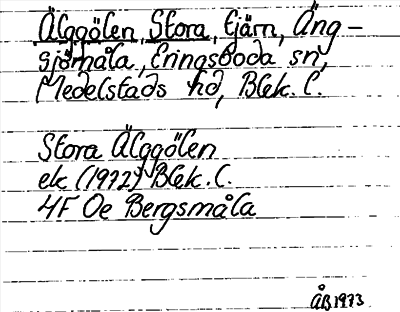 Älggölen, Stora, tjärn, Äng-
sjömåla, Eringsboda sn,
Medelstads hd, Blek. l.
Stora Älggölen
ek (1972) Blek. l.
4F 0e Bergsmåla
ÅB 1973